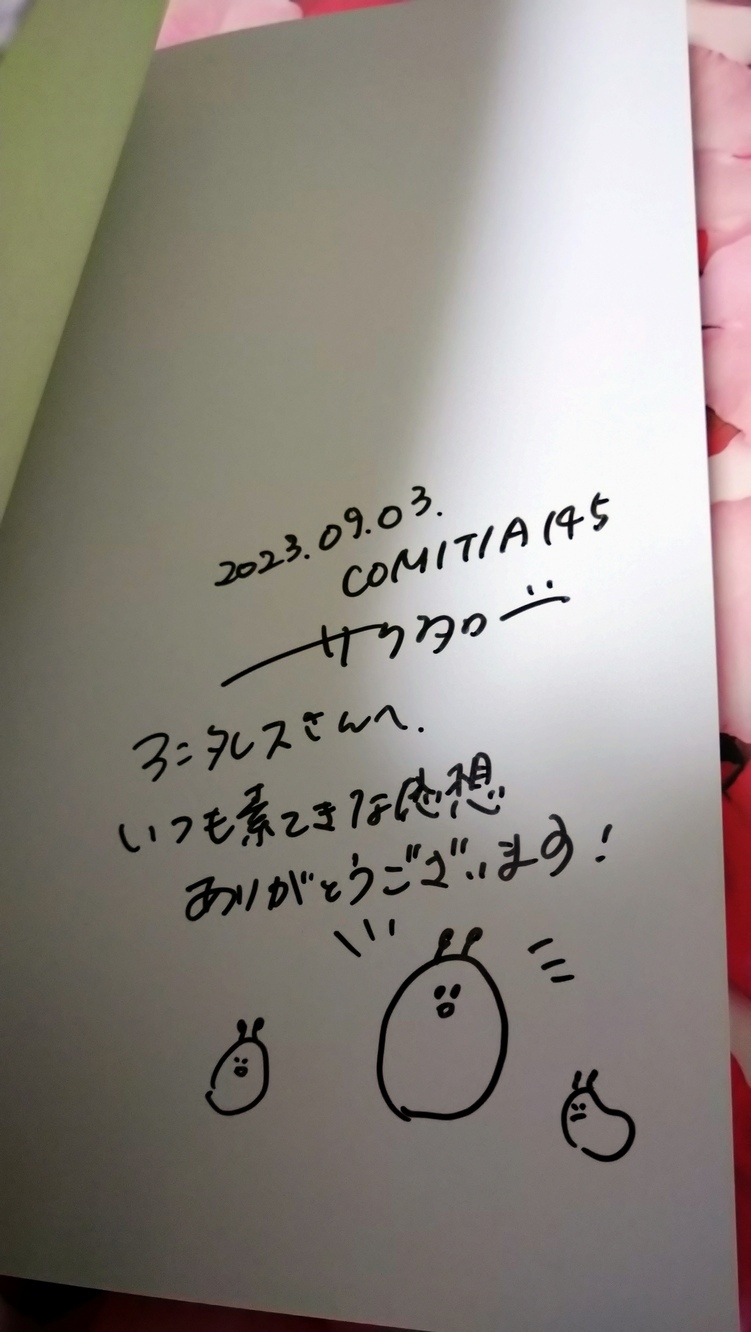 2023.09.03.
COMITIA 145
サクタロー
マニタレスさんへ.
いつも素てきな感想
ありがとうございます!